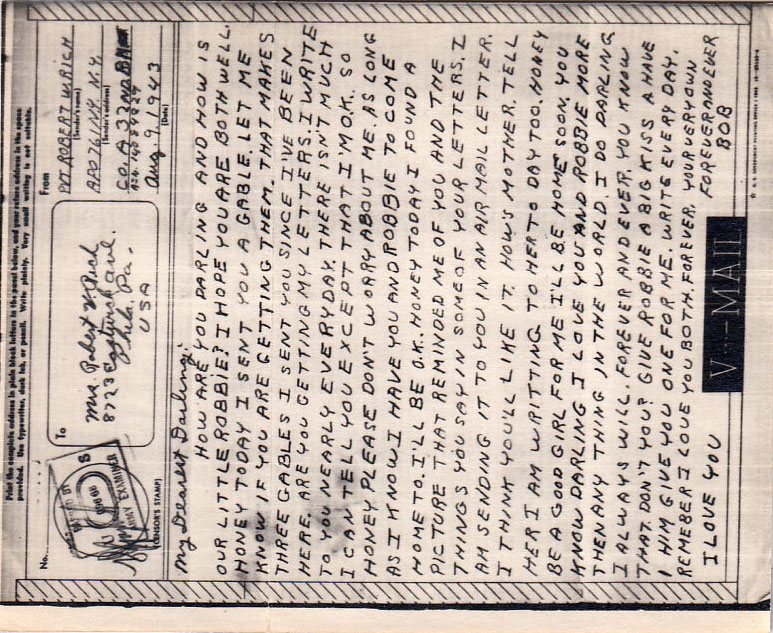 Print the complete address in plain block letters in the panel below, and your return address in the space
provided. Use typewriter, dark ink, or pencil. Write plainly. Very small writing is not suitable.
No.
PASSED BY
U S
ARMY EXAMINER
(CENSOR'S STAMP)
To
Mrs. Robert W. Rich
8723
Phila. Pa.
USA
From
PVT ROBERT W. RICH
(Sender's name)
APO 761 N.Y. N.Y.
(Sender's address)
CO. A 32ND
Aug. 9, 1943
(Date)
My Dearest Darling:
HOW ARE YOU DARLING AND HOW IS
OUR LITTLE ROBBIE? I HOPE YOU ARE BOTH WELL.
HONEY TODAY I SENT YOU A GABLE. LET ME
KNOW IF YOU ARE GETTING THEM. THAT MAKES
THREE GABLES I SENT YOU SINCE I'VE BEEN
HERE. ARE YOU GETTING MY LETTERS. I WRITE
TO YOU NEARLY EVERYDAY. THERE ISN'T MUCH
I CAN TELL YOU EXCEPT THAT I'M O.K. SO
HONEY, PLEASE DON'T WORRY ABOUT ME. AS LONG
AS I KNOW I HAVE YOU AND ROBBIE TO COME
HOME TO. I'LL BE O.K. HONEY TODAY I FOUND A
PICTURE THAT REMINDED ME OF YOU AND THE
THINGS YOU SAY IN SOME OF YOUR LETTERS. I
AM SENDING IT TO YOU IN AN AIR MAIL LETTER.
I THINK YOU'LL LIKE IT. HOW'S MOTHER. TELL
HER I AM WRITTING TO HER TO DAY TOO. HONEY
BE A GOOD GIRL FOR ME I'LL BE HOME SOON. YOU
KNOW DARLING I LOVE YOU AND ROBBIE MORE
THEN ANY THING IN THE WORLD. I DO DARLING
I ALWAYS WILL. FOREVER AND EVER. YOU KNOW
THAT. DON'T YOU? GIVE ROBBIE A BIG KISS & HAVE
HIM GIVE YOU ONE FOR ME. WRITE EVERY DAY.
REMEBER I LOVE YOU BOTH. FOREVER. YOUR VERY OWN
FOREVER AND EVER
I LOVE YOU
BOB
V···—MAIL